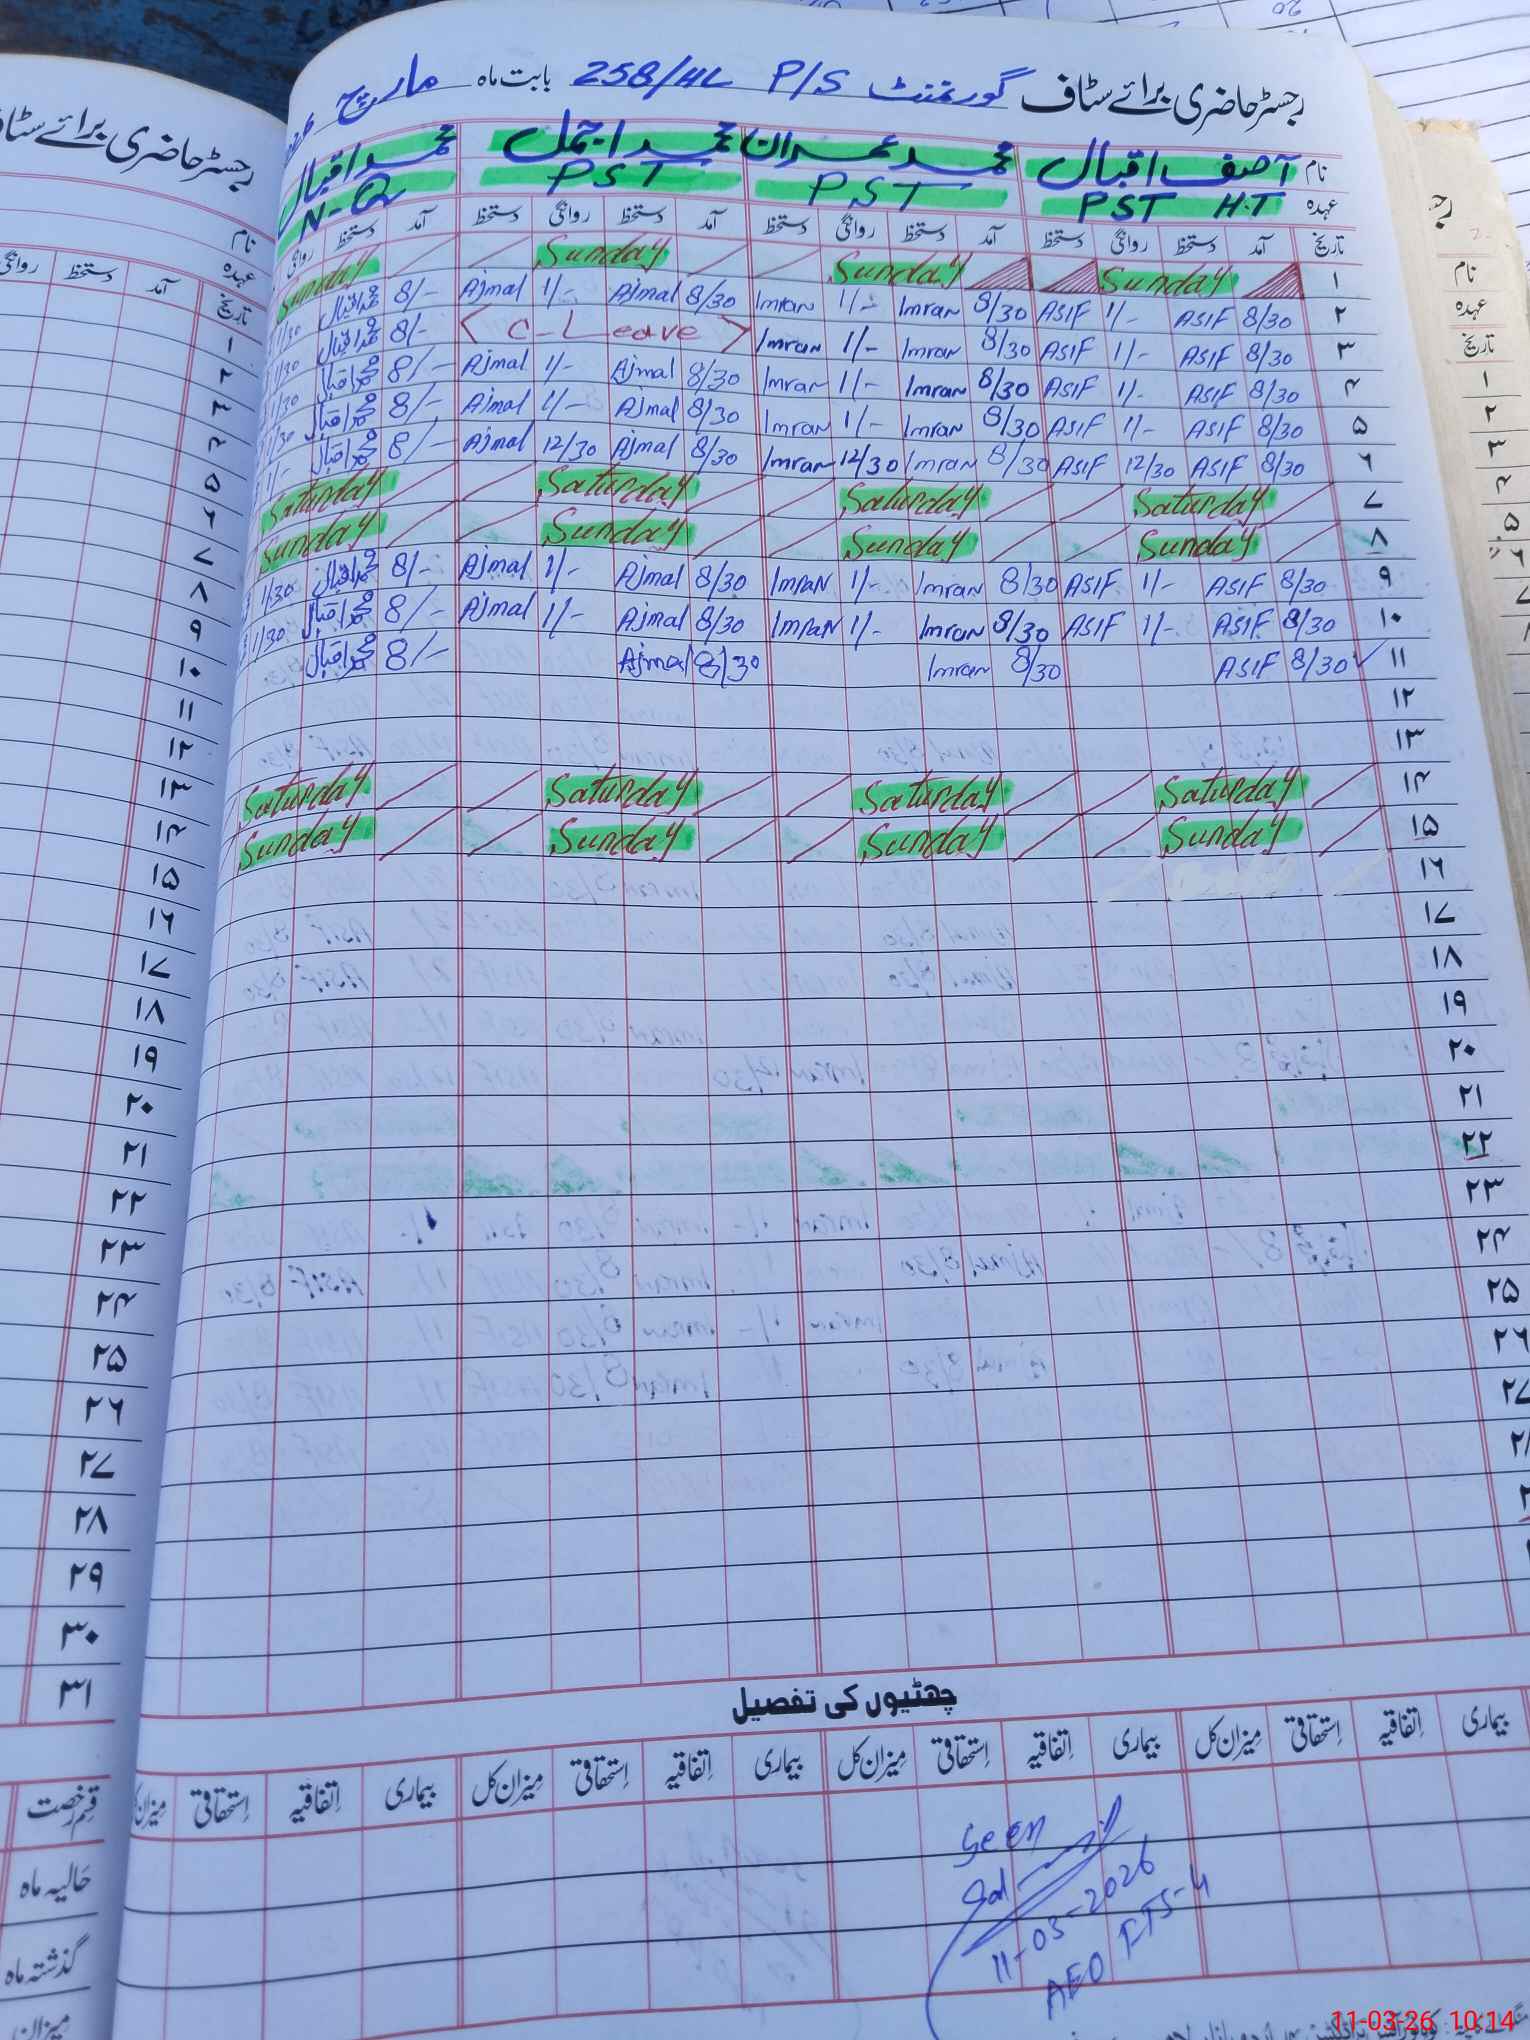 رجسٹر حاضری برائے سٹاف گورنمنٹ P/S 258/4L بابت ماہ مارچ
نام آصف اقبال محمد عمران محمد اجمل محمد اقبال
عہدہ PST H.T PST PST N-Q
تاریخ آمد دستخط روانگی دستخط آمد دستخط روانگی دستخط آمد دستخط روانگی دستخط آمد دستخط روانگی
۱ Sunday Sunday Sunday Sunday
۲ 8/30 ASIF 1/- ASIF 8/30 Imran 1/- Imran 8/30 Ajmal 1/- Ajmal 8/- محمد اقبال 1/30
۳ 8/30 ASIF 1/- ASIF 8/30 Imran 1/- Imran < C-Leave > 8/- محمد اقبال 1/30
۴ 8/30 ASIF 1/- ASIF 8/30 Imran 1/- Imran 8/30 Ajmal 1/- Ajmal 8/- محمد اقبال 1/30
۵ 8/30 ASIF 1/- ASIF 8/30 Imran 1/- Imran 8/30 Ajmal 1/- Ajmal 8/- محمد اقبال 1/30
۶ 8/30 ASIF 12/30 ASIF 8/30 Imran 12/30 Imran 8/30 Ajmal 12/30 Ajmal 8/- محمد اقبال 1/-
۷ Saturday Saturday Saturday Saturday
۸ Sunday Sunday Sunday Sunday
۹ 8/30 ASIF 1/- ASIF 8/30 Imran 1/- Imran 8/30 Ajmal 1/- Ajmal 8/- محمد اقبال 1/30
۱۰ 8/30 ASIF 1/- ASIF 8/30 Imran 1/- Imran 8/30 Ajmal 1/- Ajmal 8/- محمد اقبال 1/30
۱۱ 8/30 ASIF 8/30 Imran 8/30 Ajmal 8/- محمد اقبال
۱۲
۱۳
۱۴ Saturday Saturday Saturday Saturday
۱۵ Sunday Sunday Sunday Sunday
۱۶
۱۷
۱۸
۱۹
۲۰
۲۱
۲۲
۲۳
۲۴
۲۵
۲۶
۲۷
چھٹیوں کی تفصیل
بیماری اتفاقیہ استحقاقی میزان کل بیماری اتفاقیہ استحقاقی میزان کل بیماری اتفاقیہ استحقاقی میزان کل بیماری اتفاقیہ استحقاقی میزان
Seen
11-03-2026
AEO FTS-4
رجسٹر حاضری برائے سٹاف
نام
عہدہ
تاریخ آمد دستخط روانگی
۱
۲
۳
۴
۵
۶
۷
۸
۹
۱۰
۱۱
۱۲
۱۳
۱۴
۱۵
۱۶
۱۷
۱۸
۱۹
۲۰
۲۱
۲۲
۲۳
۲۴
۲۵
۲۶
۲۷
۲۸
۲۹
۳۰
۳۱
قسم رخصت
حالیہ ماہ
گذشتہ ماہ
میزان
نام
عہدہ
تاریخ
۱
۲
۳
۴
۵
۶
11-03-26 10:14